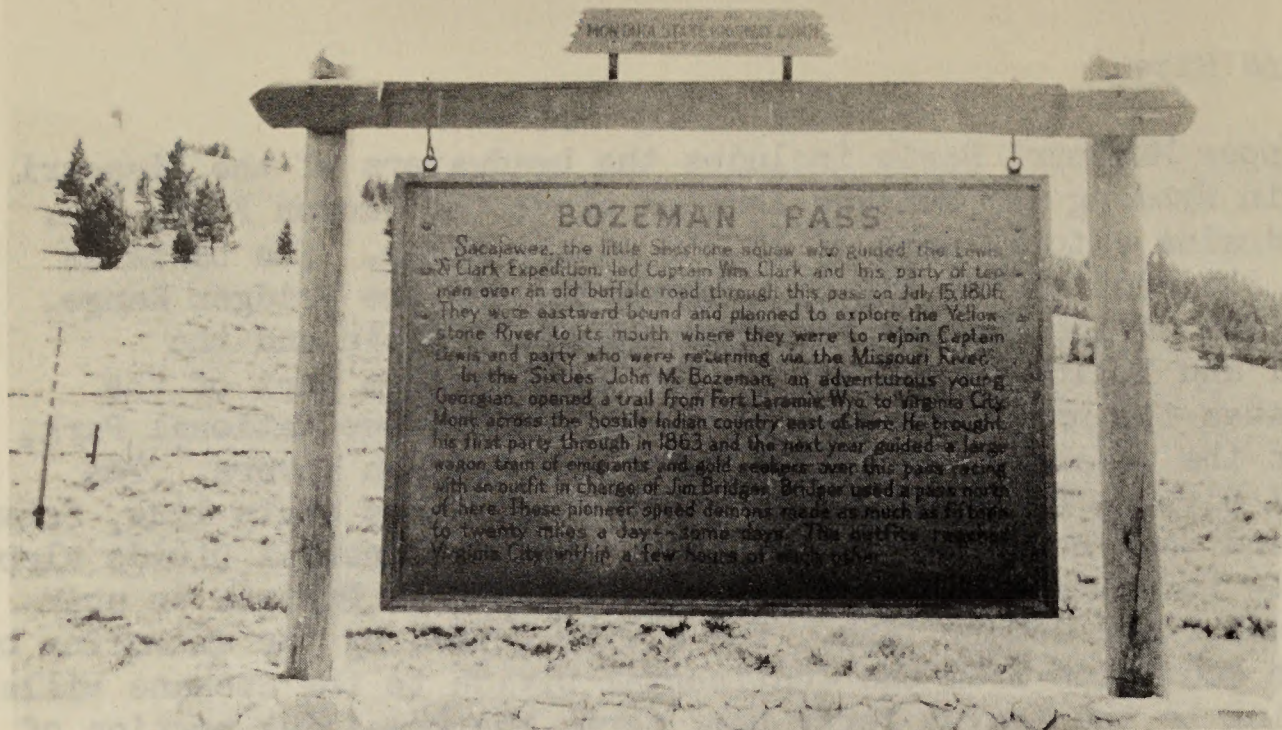 MONTANA STATE HIGHWAY COMM.
BOZEMAN PASS
Sacajawea, the little Shoshone squaw who guided the Lewis
& Clark Expedition, led Captain Wm. Clark and his party of ten
men over an old buffalo road through this pass on July 15, 1806.
They were eastward bound and planned to explore the Yellow-
stone River to its mouth where they were to rejoin Captain
Lewis and party who were returning via the Missouri River.
In the Sixties John M. Bozeman, an adventurous young
Georgian, opened a trail from Fort Laramie, Wyo. to Virginia City,
Mont. across the hostile Indian country east of here. He brought
his first party through in 1863 and the next year guided a large
wagon train of emigrants and gold seekers over this pass, racing
with an outfit in charge of Jim Bridger. Bridger used a pass north
of here. These pioneer speed demons made as much as fifteen
to twenty miles a day--some days. The outfits reached
Virginia City within a few hours of each other.